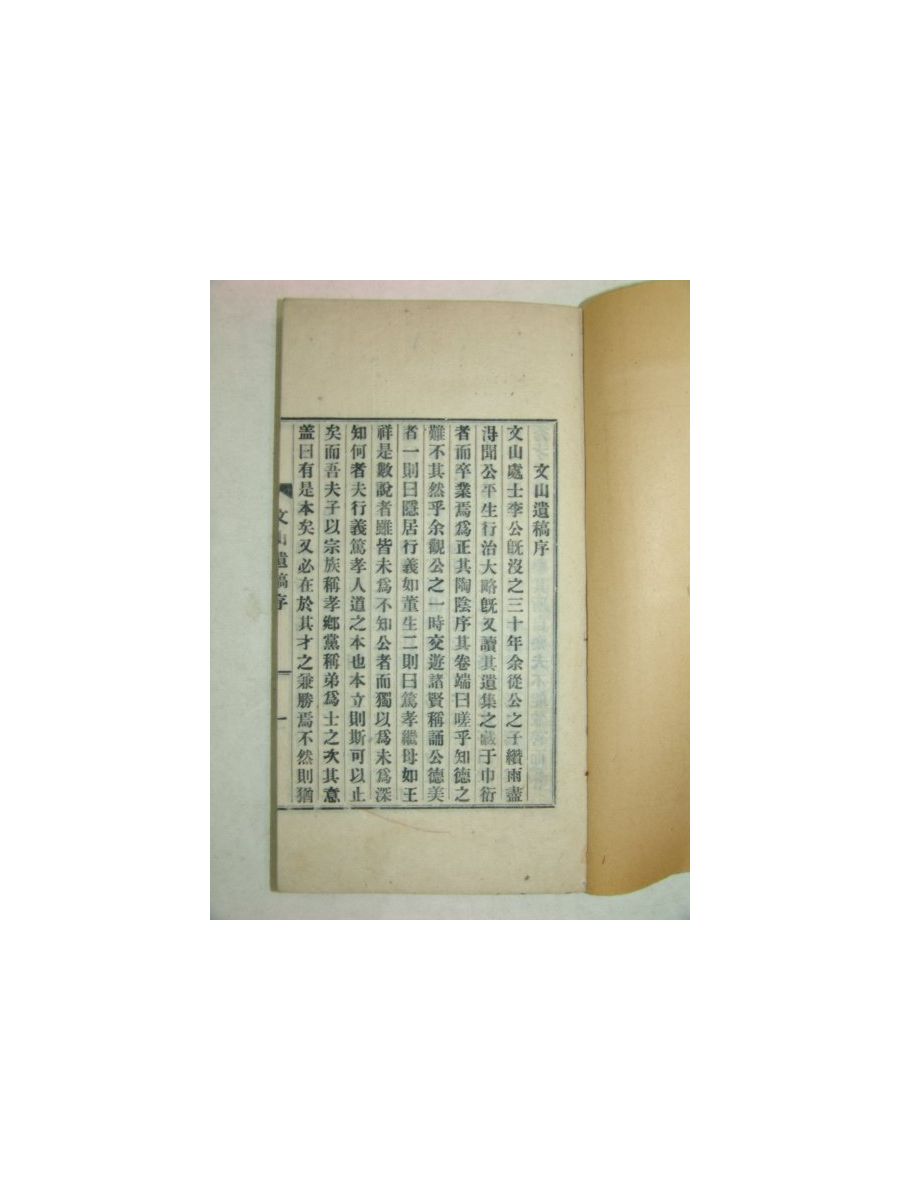 文山遺稿序
文山處士李公旣沒之三十年余從公之子纘雨盡
淂聞公平生行治大略旣又讀其遺集之藏于巾衍
者而卒業焉爲正其陶陰序其卷端曰嗟乎知德之
難不其然乎余觀公之一時交遊諸賢稱誦公德美
者一則曰隱居行義如董生二則曰篤孝繼母如王
祥是數說者雖皆未爲不知公者而獨以爲未爲深
知何者夫行義篤孝人道之本也本立則斯可以止
矣而吾夫子以宗族稱孝鄕黨稱弟爲士之次其意
盖曰有是本矣又必在於其才之兼勝焉不然則猶
文山遺稿序
一